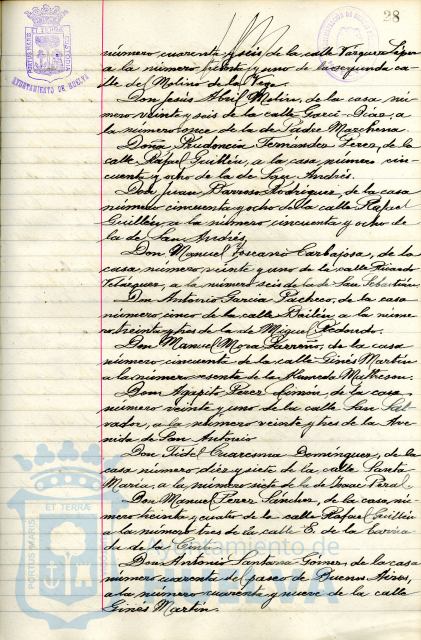 28
AYUNTAMIENTO DE HUELVA
número cuarenta y seis de la calle Vázquez López
a la número treinta y uno de la segunda ca-
lle del Molino de la Vega
Don Jesús Abril Molin, de la casa nú-
mero veinte y seis de la calle Garci-Díaz, a
la número once de la de Padre Marchena.
Doña Prudencia Fernandez Perez, de la
calle Rafael Guillén, a la casa número cin-
cuenta y ocho de la de San Andrés.
Don Juan Barroso Rodriguez de la casa
número cincuenta y ocho de la calle Rafael
Guillén, a la número cincuenta y ocho de
la de San Andrés,
Don Manuel Toscano Carbajosa, de la
casa número veinte y uno de la calle Ricardo
Velázquez, a la número seis de la de San Sebastián.
Don Antonio Garcia Pacheco, de la casa
número cinco de la calle Bailén a la núme-
ro treinta y tres de la de Miguel Redondo.
Don Manuel Mora Parreño, de la casa
número cincuenta de la calle Ginés Martin
a la número sesenta de la Alameda Matheson.
Dom Agapito Perez Limón, de la casa
número veinte y uno de la calle San Sal-
vador, a la número veinte y tres de la Ave-
nida de San Antonio
Don Fidel Cuaresma Dominguez, de la
casa número diez y siete de la calle Santa
Maria, a la número siete de la de Isaac Peral
Don Manuel Perez Sánchez, de la casa nú-
mero treinta y cuatro de la calle Rafael Guillén
a la número tres de la calle E de la
de la Cinta
Don Antonio Santana Gómez, de la casa
número cuarenta del paseo de Buenos Aires,
a la número cuarenta y nueve de la calle
Ginés Martin.
PORTUS MARIS ET TERRÆ CUSTODIA
Ayuntamiento de
HUELVA